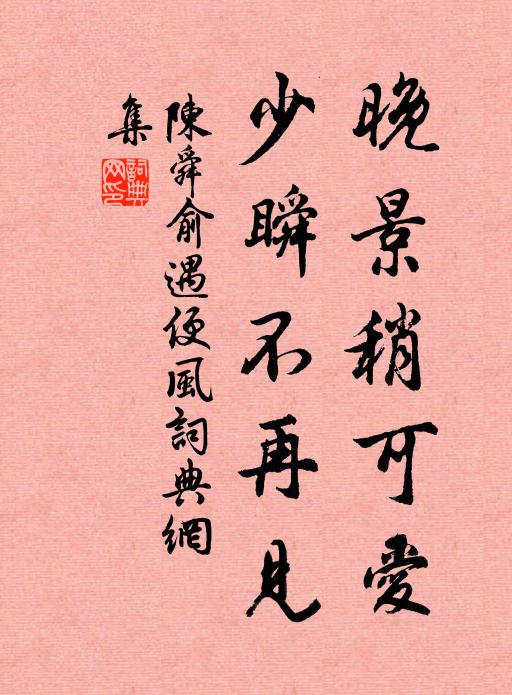 晚景稍可愛
少瞬不再見
陳舜俞遇便風詞典網
集
詞典網印